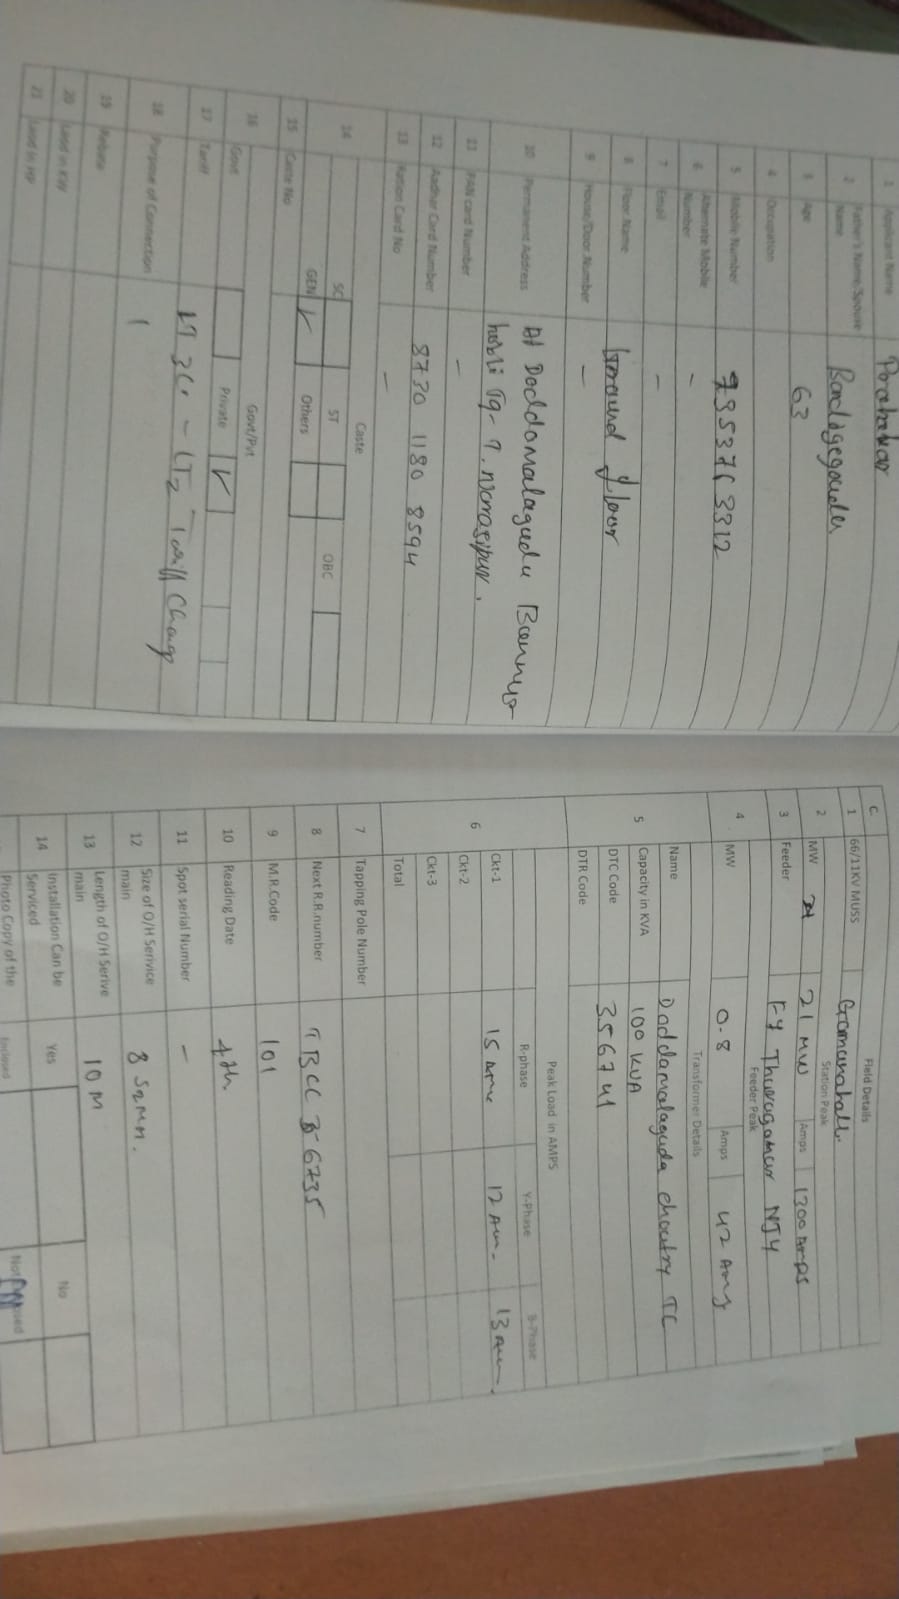 1 Applicant Name Prabhakar
2 Father's Name/Spouse Name
3 Age 63
4 Occupation
5 Mobile Number
6 Alternate Mobile Number -
7 Email -
8 Floor Name Ground floor
9 House/Door Number -
10 Permanent Address At Doddamalagudu Bannur
hobli Tq- T. Narasipur.
11 PAN card Number -
12 Aadhar Card Number 8730 1180 8594
13 Ration Card No -
14 Caste
SC ST OBC
GEN ✓ Others
15 Caste No
16 Govt/Pvt
Govt Private ✓
17 Tariff
18 Purpose of Connection Tariff Change
19 Rebate
20 Load in KW
21 Load in HP
C. Field Details
1 66/11KV MUSS
Station Peak
2 MW 21 MW Amps 1300 Amps
3 Feeder NJY
Feeder Peak
4 MW 0.8 Amps 42 Amps
Transformer Details
5 Name Doddamalagudu choutry TC
Capacity in KVA 100 KVA
DTC Code 356741
DTR Code
6 Peak Load in AMPS
R-phase Y-Phase B-Phase
Ckt-1 15 Amp 12 Am- 13 Am.
Ckt-2
Ckt-3
Total
7 Tapping Pole Number
8 Next R.R.number 6735
9 M.R.Code 101
10 Reading Date 4th
11 Spot serial Number -
12 Size of O/H Serivice main 8 SqMM.
13 Length of O/H Serive main 10 M
14 Installation Can be Serviced Yes No
Photo Copy of the Enclosed